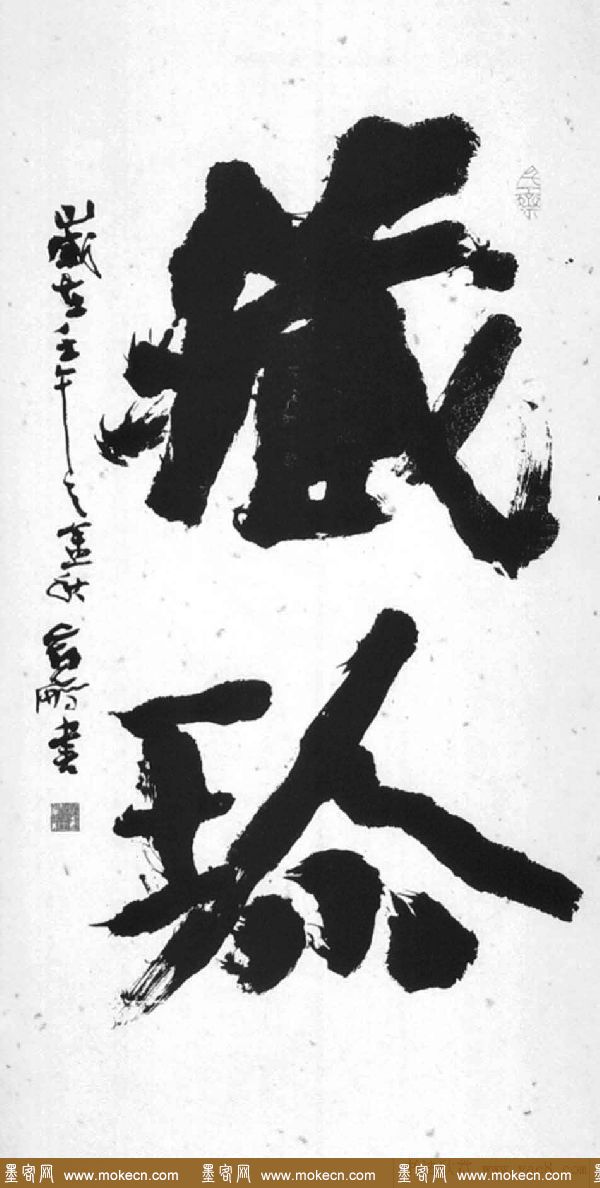 藏珍
歲在壬午之金秋 言鵬書
墨客网 www.mokecn.com 墨客网 www.mokecn.com 墨客网 www.mokecn.com 墨客网